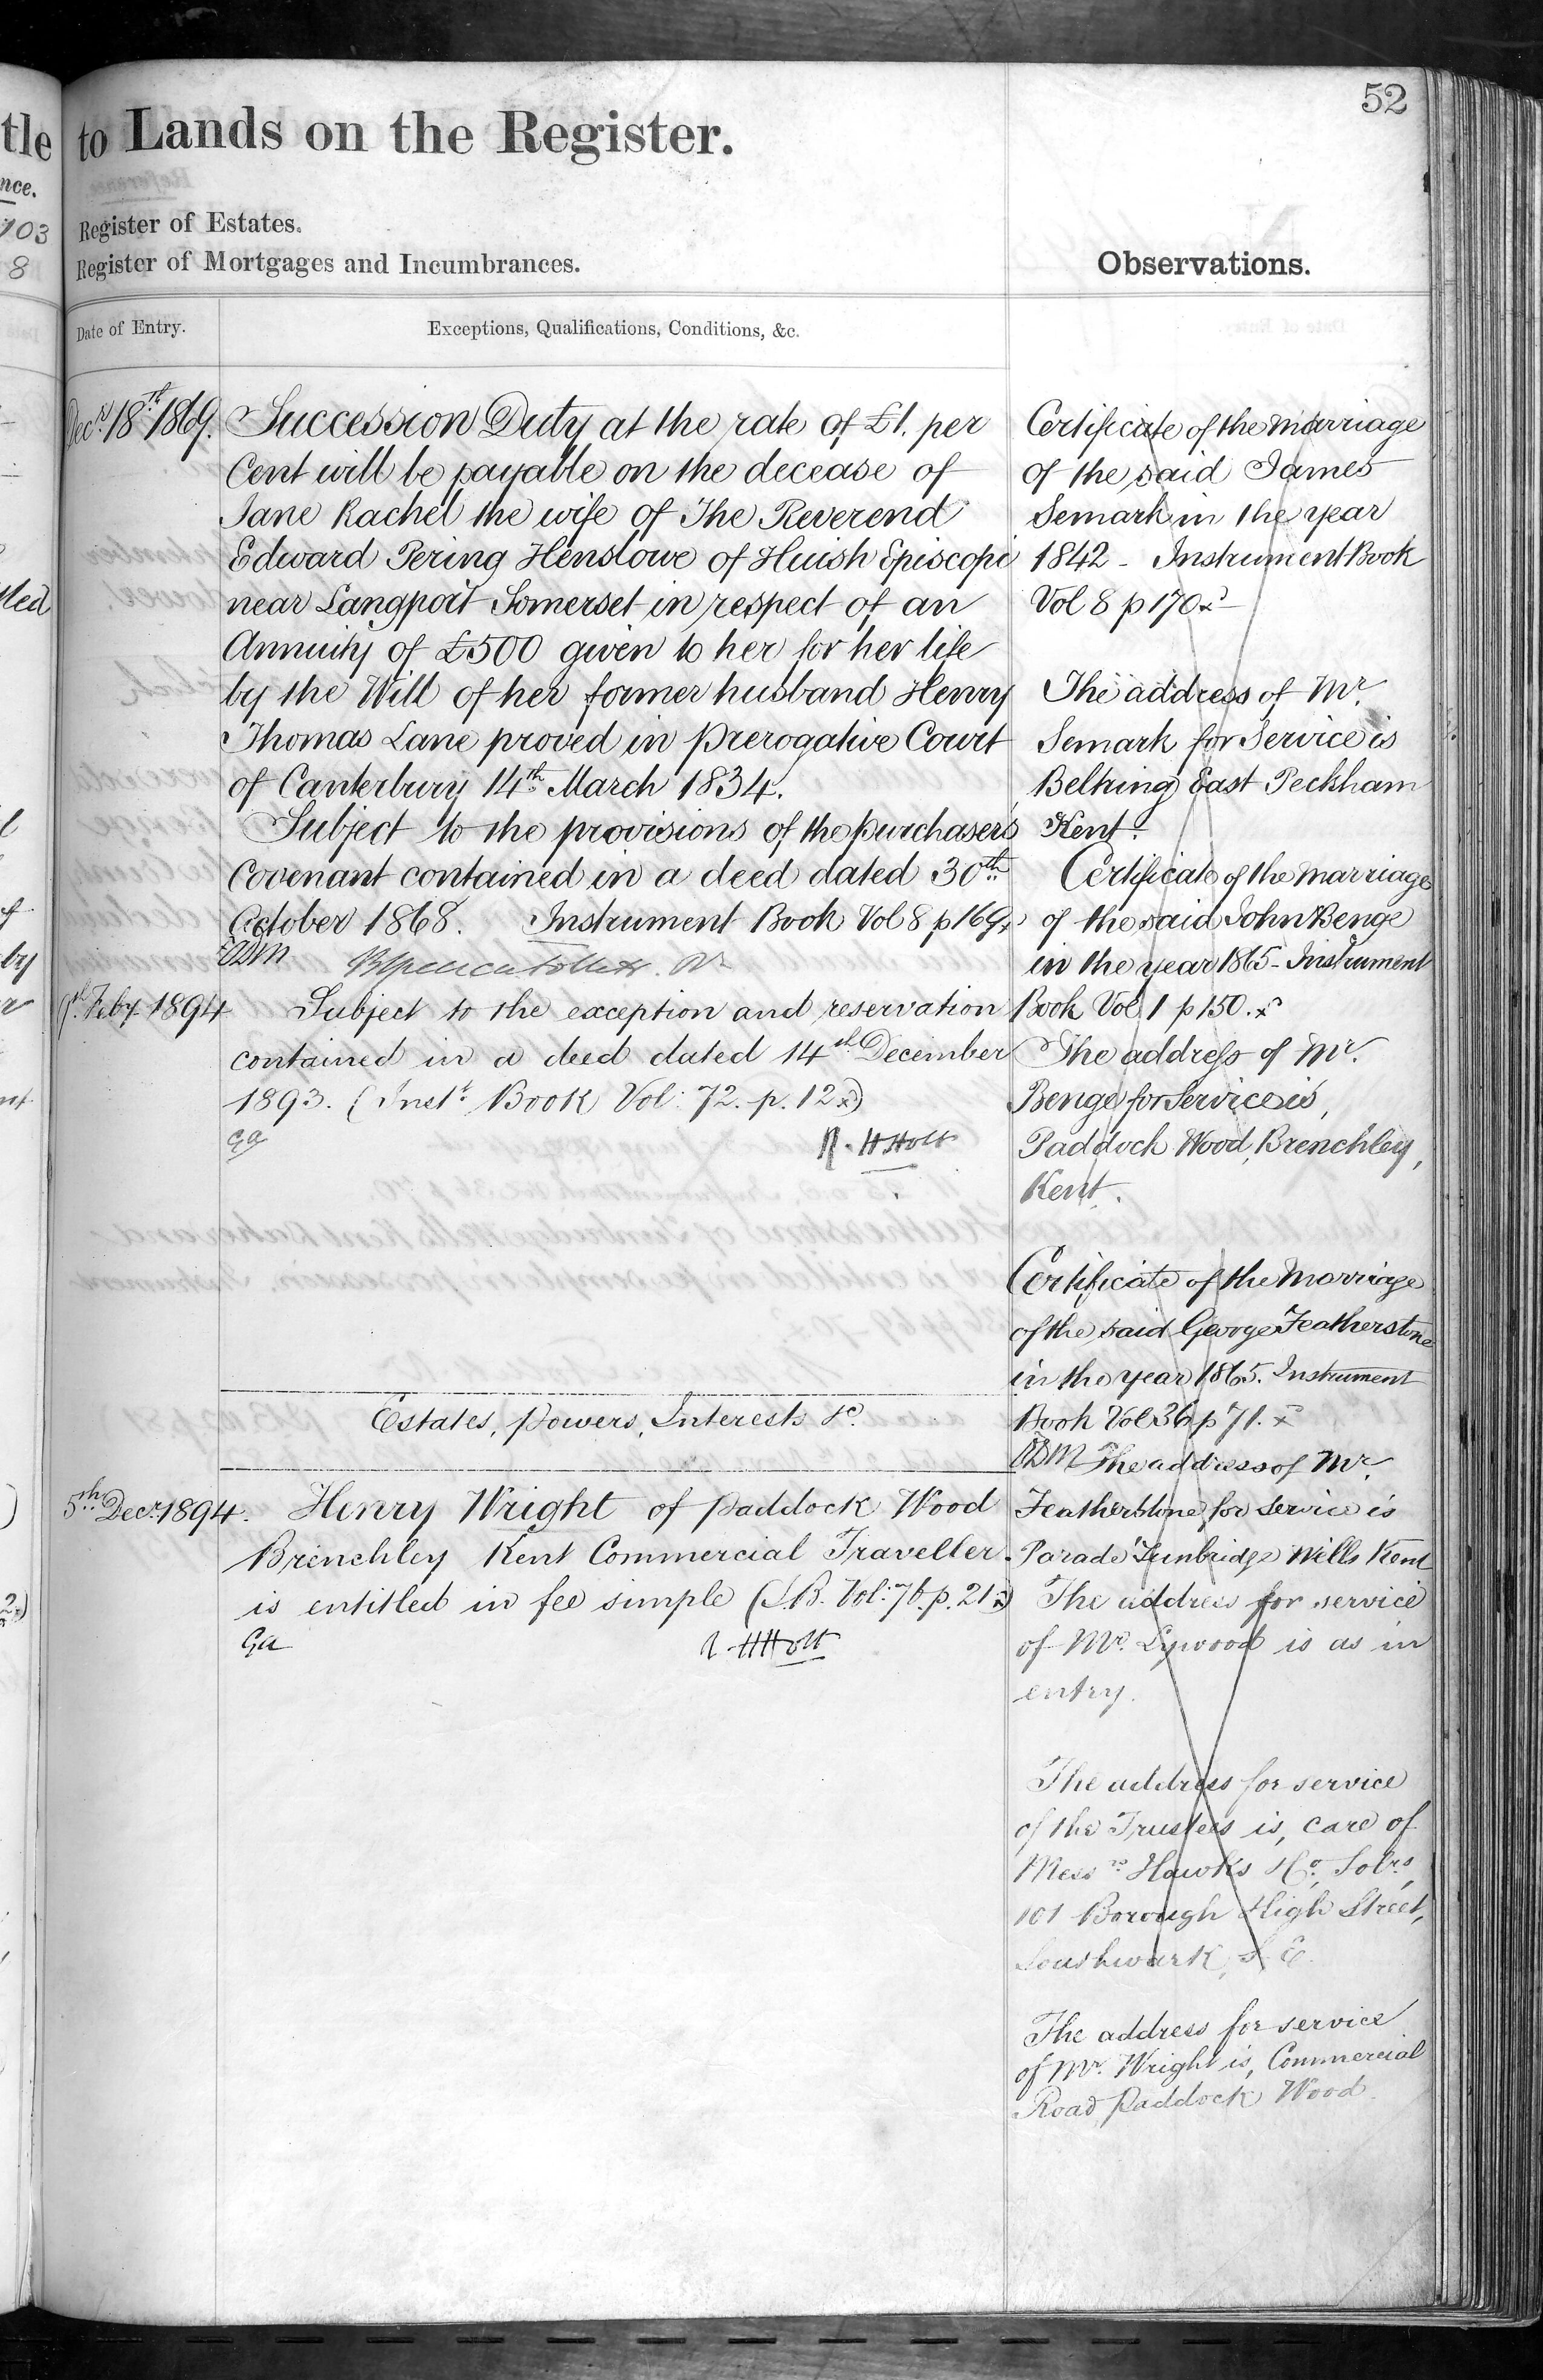 52
tle to Lands on the Register.
nce.
Register of Estates.
103
Register of Mortgages and Incumbrances.
8
Observations.
Date of Entry.
Exceptions, Qualifications, Conditions, &c.
Decr. 18th. 1869.
Succession Duty at the rate of £1. per
Cent will be payable on the decease of
Jane Rachel the wife of The Reverend
Edward Pering Henslowe of Huish Episcopi
near Langport Somerset in respect of an
Annuity of £500 given to her for her life
by the Will of her former husband Henry
Thomas Lane proved in Prerogative Court
of Canterbury 14th. March 1834.
Subject to the provisions of the purchasers
Covenant contained in a deed dated 30th.
October 1868. Instrument Book Vol 8 p 169
Feby. 1894
Subject to the exception and reservation
contained in a deed dated 14th. December
1893. (Instt. Book Vol: 72. p. 12)
GA
R. H Holt
Estates, Powers, Interests &c.
5th. Decr. 1894.
Henry Wright of Paddock Wood
Brenchley Kent Commercial Traveller
is entitled in fee simple (I.B. Vol: 76. p. 21)
GA
R. H Holt
Certificate of the Marriage
of the said James
Semark in the year
1842 - Instrument Book
Vol 8 p 170
The address of Mr.
Semark for Service is
Beltring East Peckham
Kent.
Certificate of the Marriage
of the said John Benge
in the year 1865 - Instrument
Book Vol. 1 p 150.
The address of Mr.
Benge for Service is,
Paddock Wood, Brenchley,
Kent.
Certificate of the Marriage
of the said George Featherstone
in the year 1865. Instrument
Book Vol 36 p 71.
The address of Mr.
Featherstone for Service is
Parade Tunbridge Wells Kent
The address for service
of Mr. Lywood is as in
entry.
The address for service
of the Trustees is, care of
Messrs. Hawks & Co., Solrs,
101 Borough High Street,
Southwark, S.E.
The address for service
of Mr. Wright is, Commercial
Road Paddock Wood.